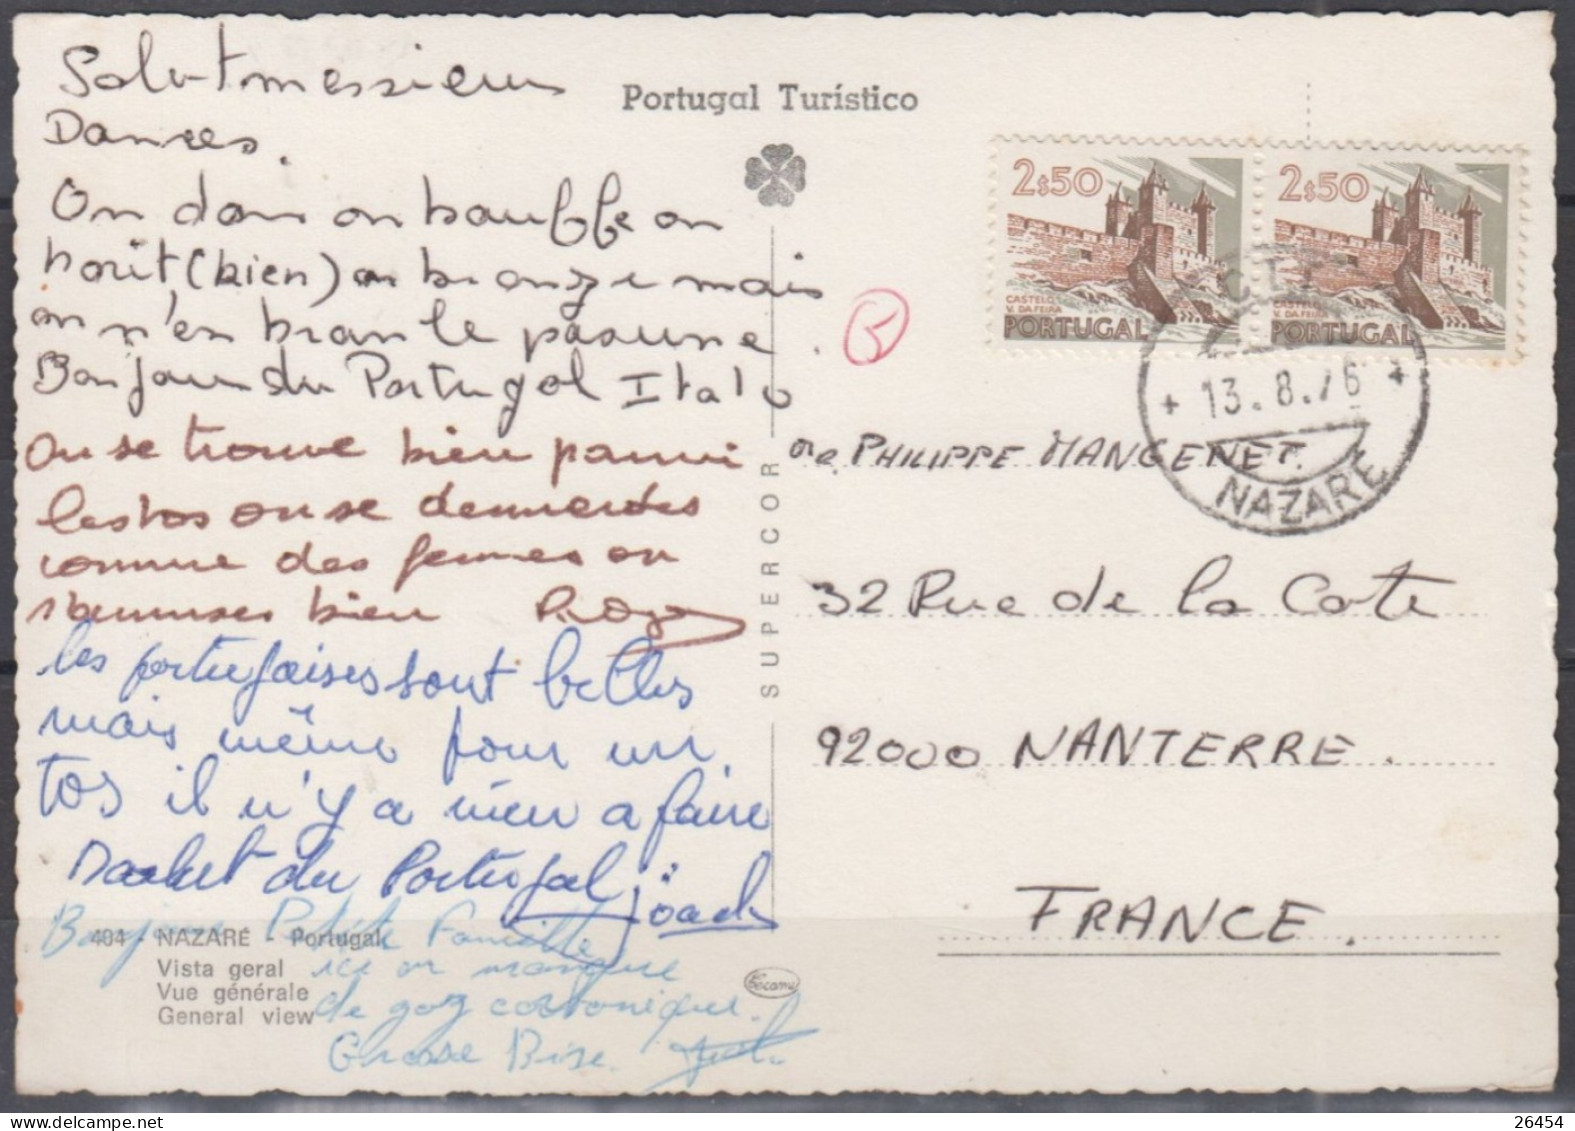 Portugal Turístico
Salut messieurs
Dames.
On dors on bouffe on
boit (bien) on bronze mais
on n'en branle pas une.
Bonjour du Portugal Italo
On se trouve bien parmi
les tos on se demerdes
comme des femmes on
s'bumuses bien Roger
les portugaises sont belles
mais même pour un
tos il n'y a rien a faire
Salut du Portugal Joach
Bonjour Petite Famille
ici on manque
de gaz carbonique.
Grosse Bise.
404 - NAZARÉ - Portugal
Vista geral
Vue générale
General view
SUPERCOR
2$50
CASTELO
V. DA FEIRA
PORTUGAL
2$50
CASTELO
V. DA FEIRA
PORTUGAL
CTT
+ 13.8.76 +
NAZARÉ
PHILIPPE MANGENET.
32 Rue de la Cote
92000 NANTERRE.
FRANCE.
26454